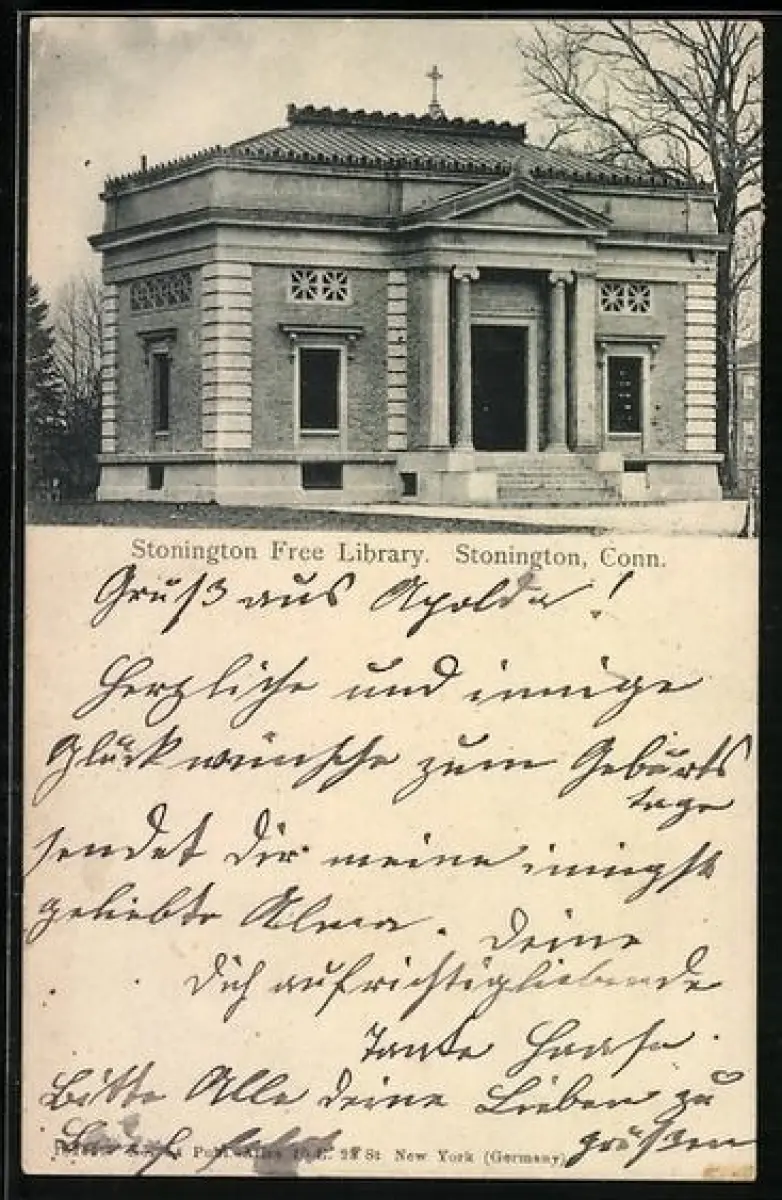 Stonington Free Library. Stonington, Conn.
Gruß aus Apolda!
Herzliche und innige
Glückwünsche zum Geburts
tage
sendet Dir meine innigst
geliebte Alma. Deine
Dich aufrichtigliebende
Tante Haase.
Bitte Alle deine Lieben zu
grüßen
Publ. 10 E. 23 St New York (Germany)